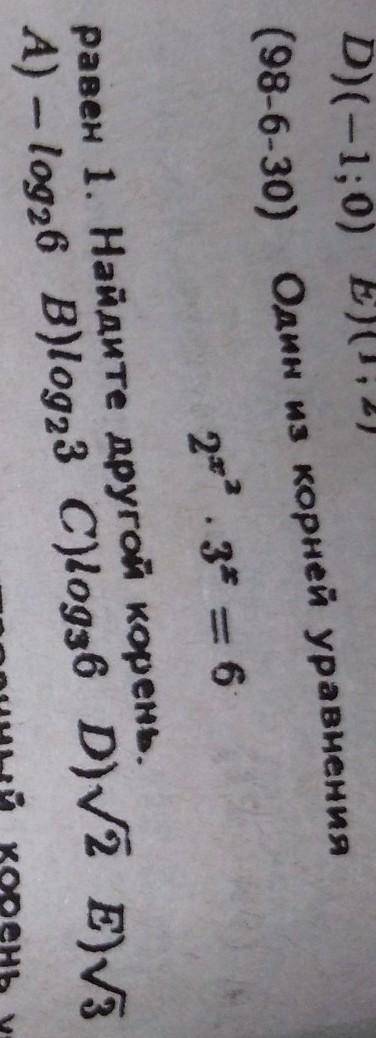 D)(−1;0) E)(1;2)
(98-6-30) Один из корней уравнения
2^{x^2} · 3^x = 6
равен 1. Найдите другой корень.
A) − log₂6 B)log₂3 C)log₃6 D)√2 E)√3
корень